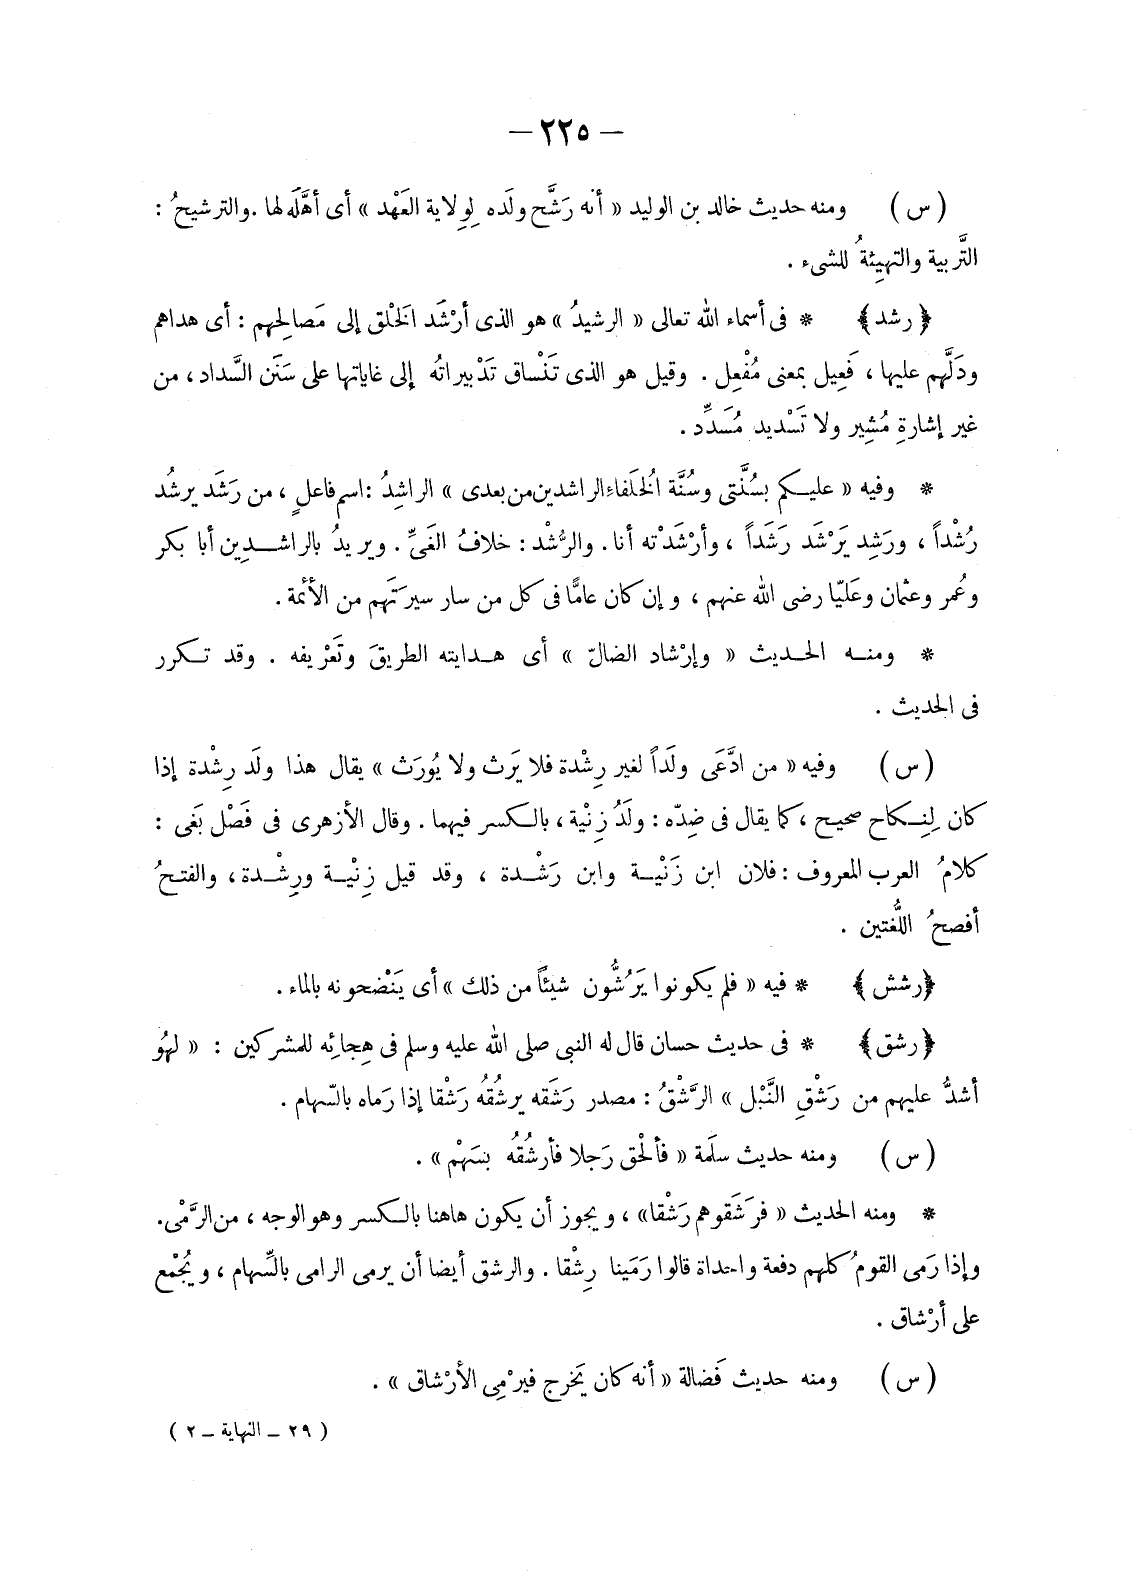 — ٢٢٥ —
( س ) ومنه حديث خالد بن الوليد « أنه رَشَّح ولَده لِوِلاية العَهْد » أى أهَّلَه لها . والترشيحُ :
التَّربية والتهيِئةُ للشىء .
﴿ رشد ﴾ * فى أسماء الله تعالى « الرشيدُ » هو الذى أرْشَد الخَلْق إلى مَصالِحِهم : أى هداهم
ودَلَّهم عليها ، فَعِيل بمعنى مُفْعِل . وقيل هو الذى تَنْساق تَدْبيراتُه إلى غاياتها على سَنَن السَّداد ، من
غير إشارةِ مُشِير ولا تَسْديد مُسَدِّد .
* وفيه « عليكم بسُنَّتى وسُنَّة الخُلَفاءِ الراشدين من بعدى » الراشِدُ : اسم فاعلٍ ، من رَشَد يرشُد
رُشْداً ، ورَشِد يَرْشَد رَشَداً ، وأرْشَدْته أنا . والرُّشْد : خلافُ الغَىِّ . ويريدُ بالراشدِين أبا بكر
وعُمر وعثمان وعَليّا رضى الله عنهم ، وإن كان عامًّا فى كل من سار سيرَتَهم من الأئمة .
* ومنه الحديث « وإرْشاد الضالّ » أى هدايته الطريقَ وتَعْريفه . وقد تكرر
فى الحديث .
( س ) وفيه « من ادَّعَى ولَداً لغير رِشْدة فلا يَرث ولا يُورَث » يقال هذا ولَد رِشْدة إذا
كان لِنِكاح صحيح ، كما يقال فى ضِدّه : ولَدُ زِنْية ، بالكسر فيهما . وقال الأزهرى فى فَصْل بَغى :
كلامُ العرب المعروف : فلان ابن زَنْية وابن رَشْدة ، وقد قيل زِنْية ورِشْدة ، والفتحُ
أفصحُ اللُّغتين .
﴿ رشش ﴾ * فيه « فلم يكونوا يَرُشُّون شيئاً من ذلك » أى يَنْضحونه بالماء .
﴿ رشق ﴾ * فى حديث حسان قال له النبى صلى الله عليه وسلم فى هِجائِه للمشركين : « لهُو
أشدُّ عليهم من رَشْقِ النَّبْل » الرَّشْقُ : مصدر رَشَقه يرشُقُه رَشْقا إذا رَماه بالسّهام .
( س ) ومنه حديث سلَمة « فألْحَق رَجلا فأرشُقُه بسَهْم » .
* ومنه الحديث « فرَشَقوهم رَشْقا » ، ويجوز أن يكون هاهنا بالكسر وهو الوجه ، من الرَّمْى .
وإذا رَمى القومُ كلهم دفعة واحداة قالوا رَمَينا رِشْقا . والرشق أيضا أن يرمى الرامى بالسِّهام ، ويُجْمع
على أرْشاق .
( س ) ومنه حديث فَضالة « أنه كان يَخرج فيرْمِى الأرْشاق » .
( ٢٩ – النهاية – ٢ )